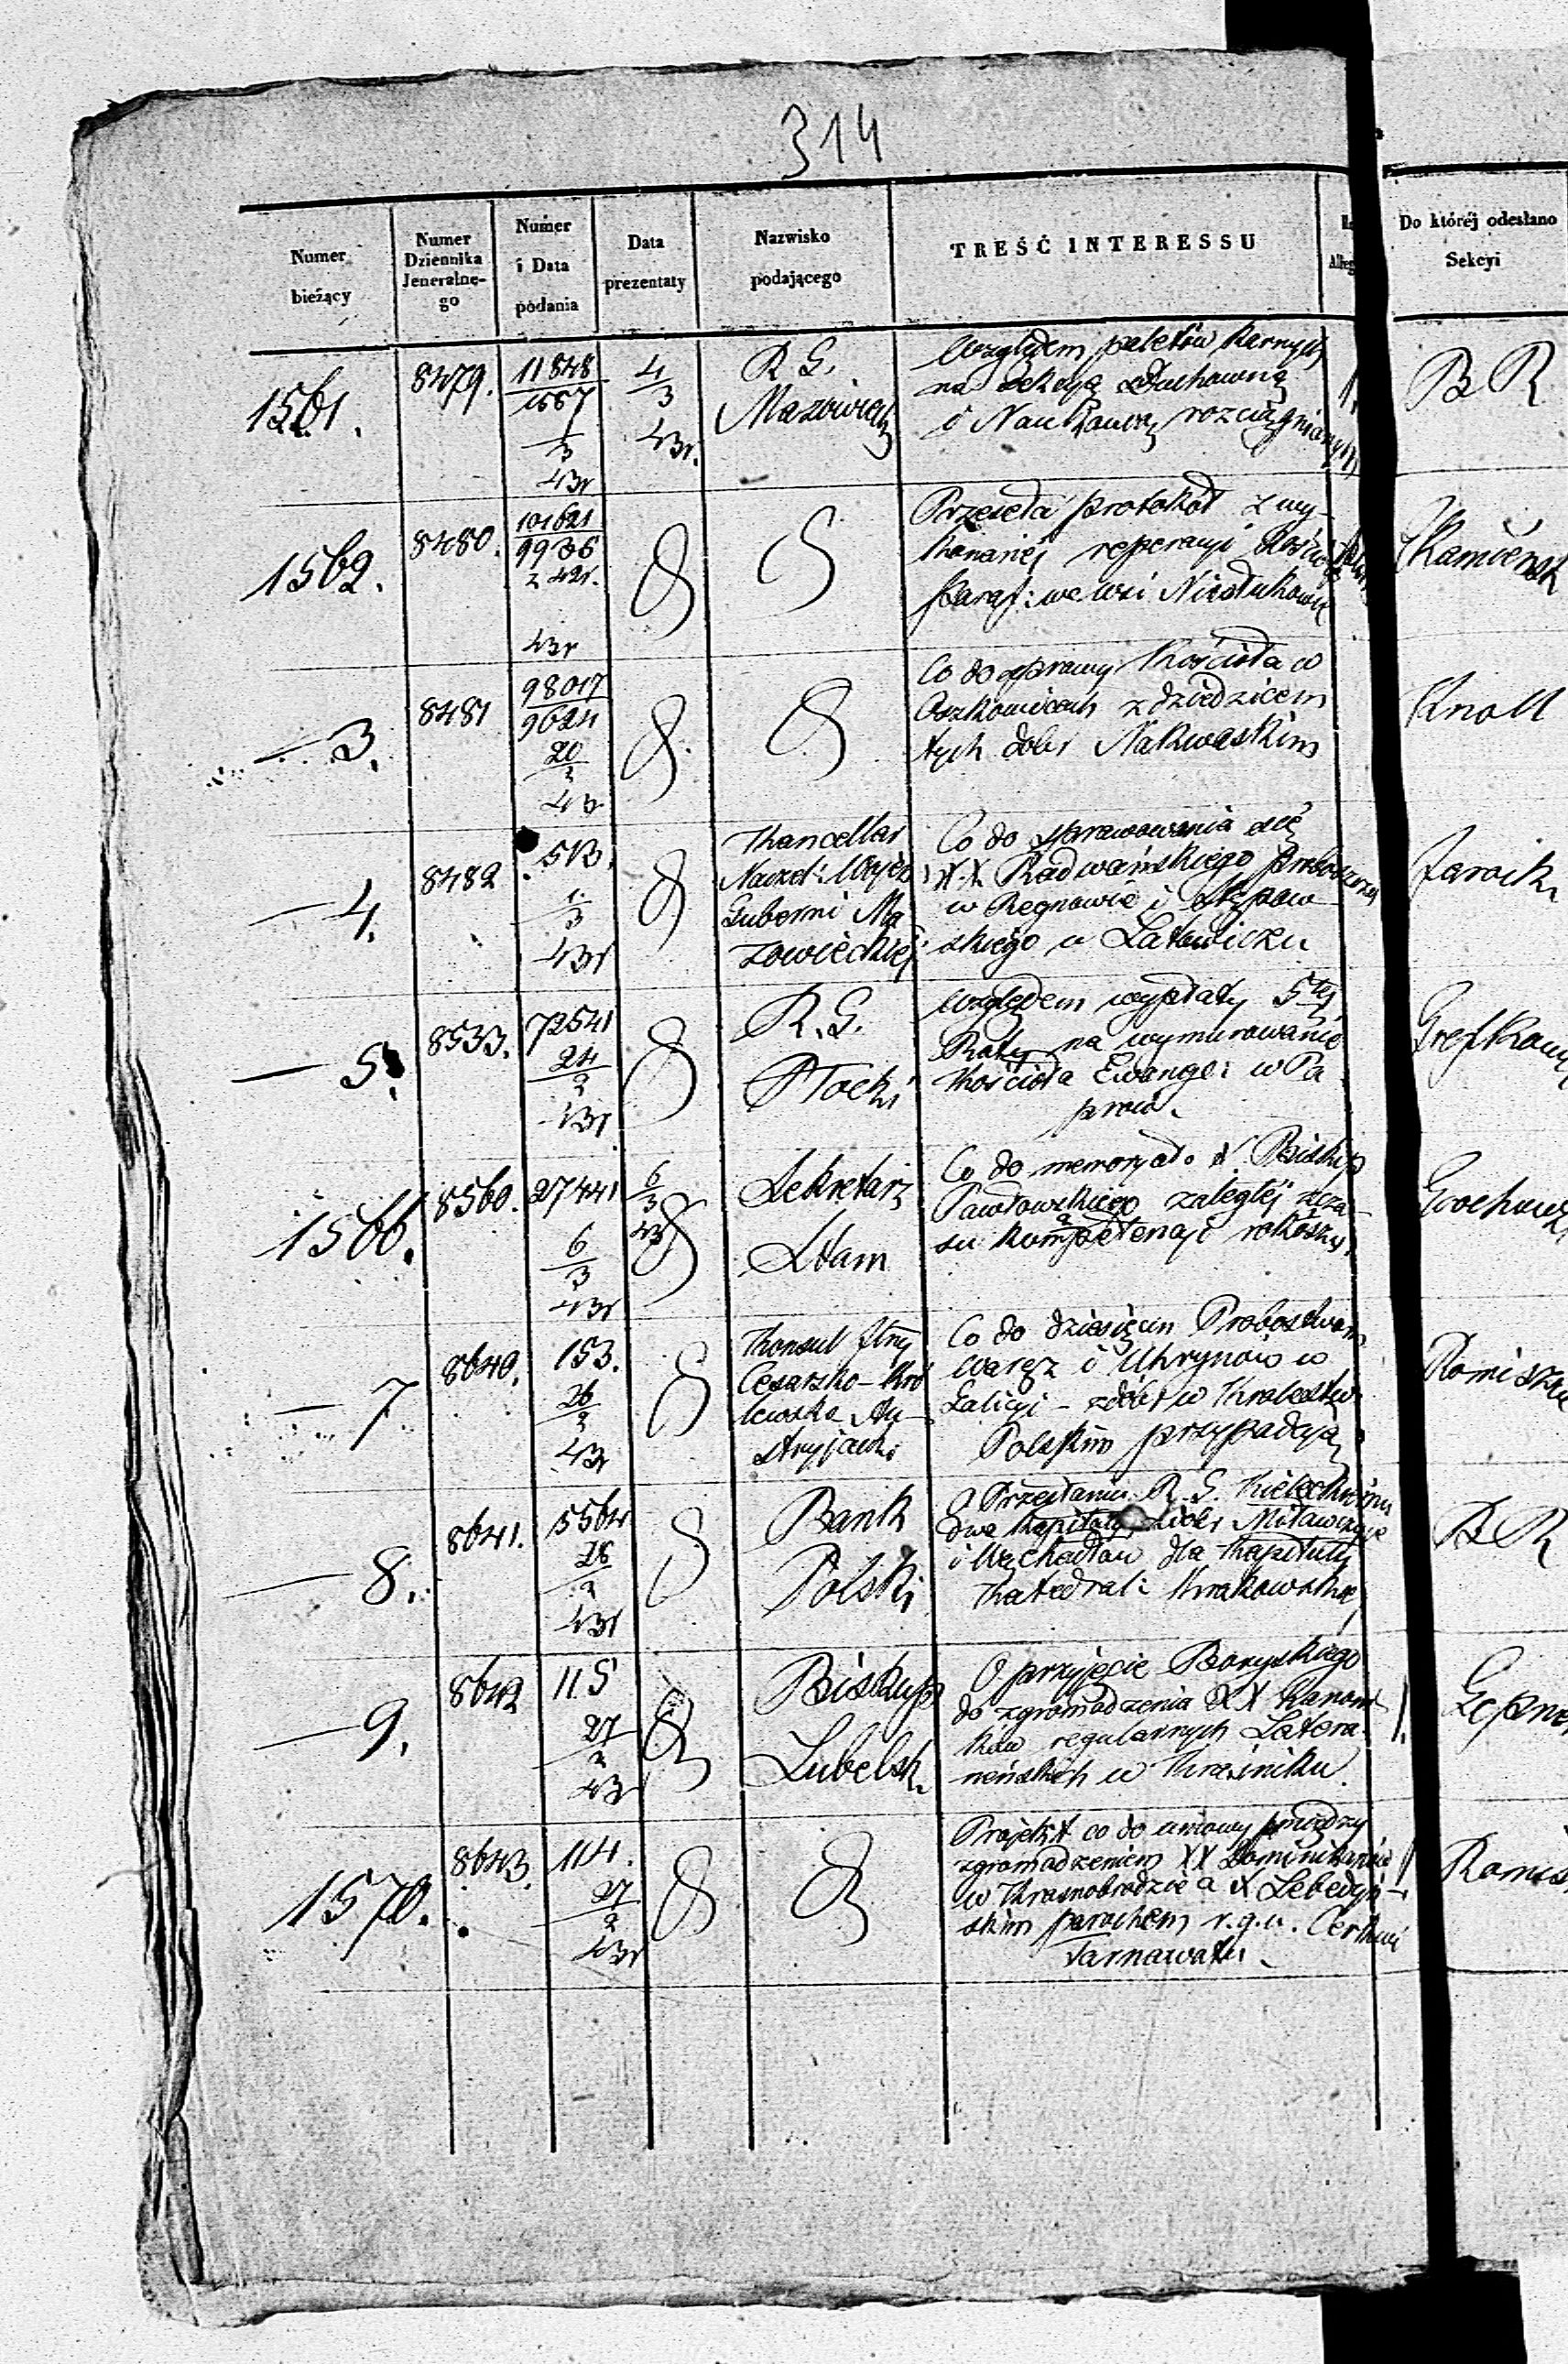 314
Numer bieżący
Numer Dziennika Jeneralne-go
Numer i Data podania
Data prezentaty
Nazwisko podającego
TREŚĆ INTERESSU
Do któréj odesłano Sekcyi
1561.
8479.
11848
1567
3
43r
4
3
43r.
R. G.
Mazowiecki
Względem paletów karnych
na Sekcyą Duchowną
i Naukową rozciągnionych
B R
1562.
8480.
101621
9936
z 42r.
43r
Przeseła protokół z wy-
konanéj reperacyi Kościoła
paraf: we wsi
3.
8481
98017
9624
20
2
43
Co do oprawy Kościoła w
Oszkowicach z dziedzicem
tych dóbr Nakwaskim
Knoll
4.
8482
513.
1
3
43r
Kancellar
Naczel: Wojen
Guberni Ma
zowieckiéj
Co do sprawowania się
XX. Radwańskiego Proboszcza
w Regnowie i
skiego w Latowiczu
5.
8533.
72541
24
2
43r
R. G.
Płocki
Względem wypłaty 5téj
Raty na wymurowanie
Kościoła Ewange: w Pa
prow.
1566.
8560.
27441
6
3
43r
6
3
43
Sekretarz
Stanu
Co do memoryału X. Biskup
Pawłowskiego zaległéj zcza-
su kompetencyi
7
8640.
153.
26
2
43r
Konsul Jlny
Cesarsko-Kró
lewsko Au-
stryjacki
Co do dziesięcin Probostwom
Waręz i Uhrynów w
Galicyi – z dóbr w Królestw
Polskim przypadają
8.
8641.
5564
28
2
43r
Bank
Polski
O Przesłaniu R. G. Kieleckiemu
dwa Kapitały
i dla Kapituły
Katedral: Krakowskiéj
B R
9.
8642
115
27
2
43
Biskup
Lubelsk
O przyjęcie Boryskiego
do zgromadzenia XX Kanoni
ków regularnych Latera-
neńskich w Kraśniku.
1570.
8643.
114.
27
2
43r
Projekt co do umowy pomiędzy
zgromadzeniem XX Dominikanów
w Krasnobrodzie a X Lebedyń-
skim parochem r.g.u. Cerkwi
Tarnawatka